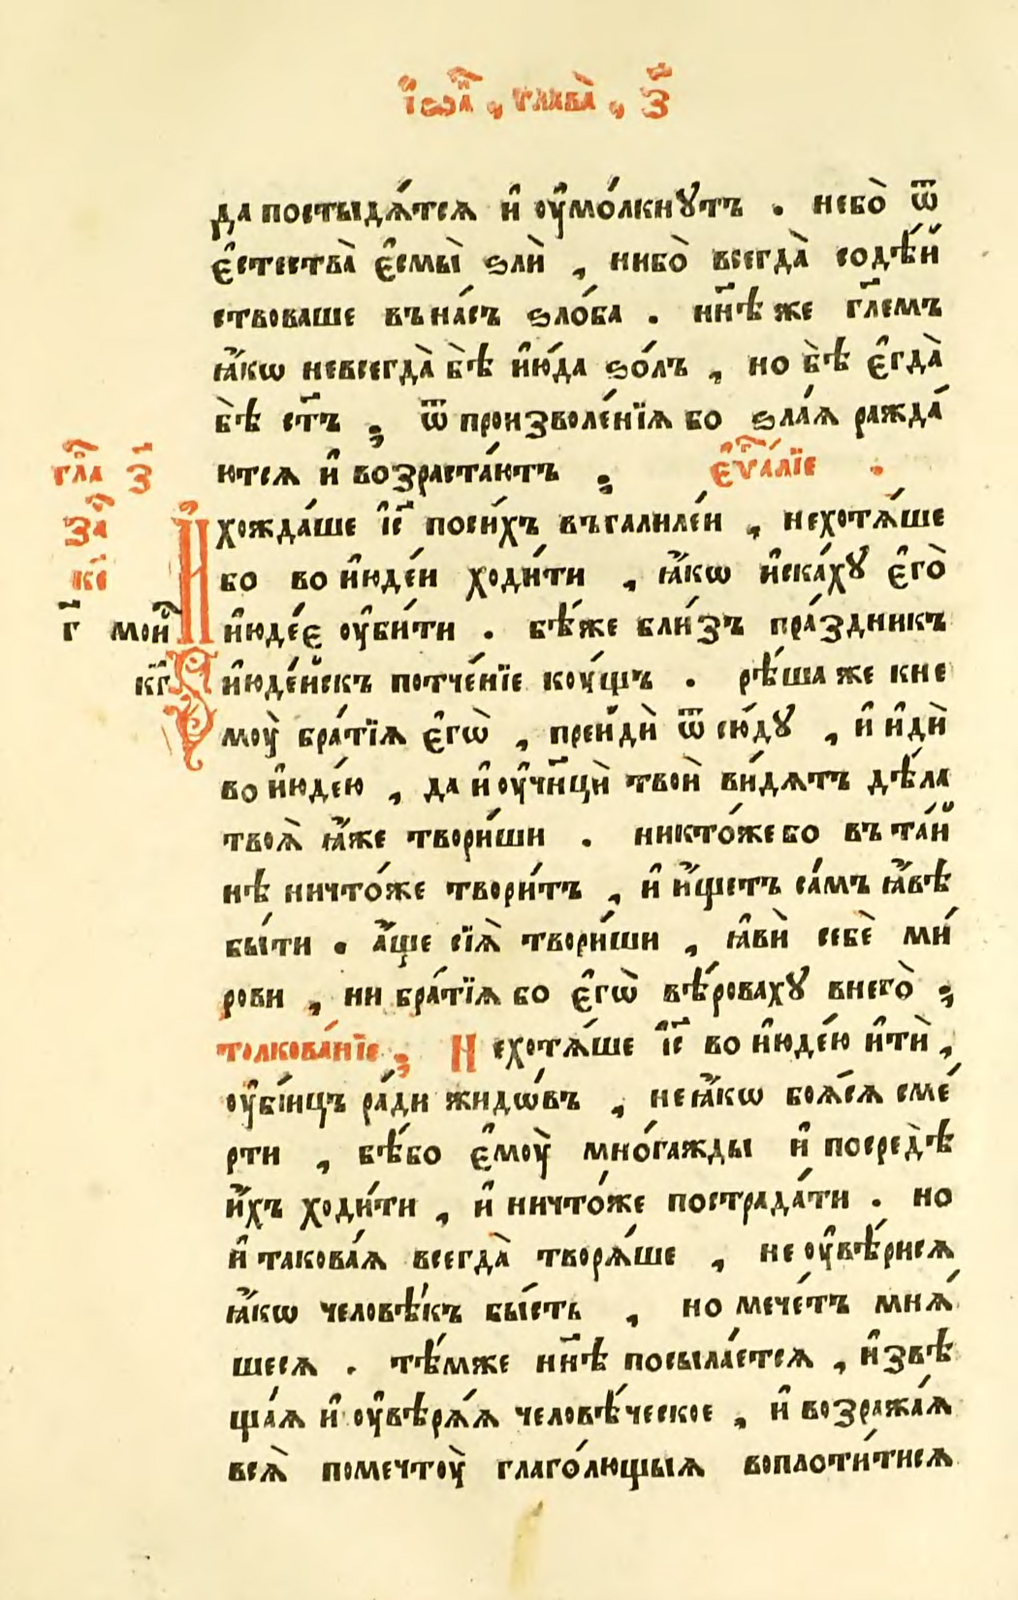 І҆ѡа҃, глава̀, з҃
да постыдѧ́тсѧ и҆ ᲂу҆мо́лкнꙋтъ . небо̀ ѿ
є҆стества̀ є҆смы̀ ѕлѝ , нибо̀ всегда̀ содѣ́й
ствоваше въ на́съ ѕло́ба . нн҃ѣ же гл҃емъ
ꙗ҆́кѡ невсегда̀ бѣ̀ и҆ю́да ѕо́лъ , но бѣ̀ є҆гда̀
бѣ̀ ст҃ъ ; ѿ произволе́нїѧ бо ѕла́ѧ ражда́
ютсѧ и҆ возраста́ютъ ; є҆ѵⷢ҇а́лїе .
гла҃ з҃
за҃
к҃ѕ
г҃ мой
к҃г
И҆хожда́ше і҆с҃ поси́хъ въгалиле́и , нехотѧ́ше
бо во и҆юде́и ходи́ти , ꙗ҆́кѡ и҆ска́хꙋ є҆го̀
и҆юде́є ᲂу҆би́ти . бѣ́же бли́зъ пра́здникъ
и҆юде́йскъ потче́нїе кᲂу́щъ . рѣ́ша же кне
мᲂу̀ бра́тїѧ є҆гѡ̀ , прейдѝ ѿ сю́дꙋ , и҆ и҆дѝ
во и҆юде́ю , да и҆ ᲂу҆чн҃цы̀ твоѝ ви́дѧтъ дѣ́ла
твоѧ̀ ꙗ҆́же твори́ши . никто́же бо въ та́й
нѣ ничто́же твори́тъ , и҆ и҆́щетъ са́мъ ꙗ҆́вѣ
бы́ти . а҆́ще сїѧ̀ твори́ши , ꙗ҆вѝ себѐ ми́
рови , ни бра́тїѧ бо є҆гѡ̀ вѣ́ровахꙋ внего̀ ;
толкова́нїе ; Нехотѧ́ше і҆с҃ во и҆юде́ю и҆тѝ ,
ᲂу҆бі́ицъ ра́ди жидѡ́въ , неꙗ҆́кѡ боѧ́сѧ сме́
рти , бѣ́бо є҆мᲂу̀ мно́гажды и҆ посредѣ̀
и҆́хъ ходи́ти , и҆ ничто́же пострада́ти . но
и҆ такова́ѧ всегда̀ творѧ́ше , не ᲂу҆вѣ́рисѧ
ꙗ҆́кѡ человѣ́къ бы́сть , но мече́тъ мнѧ́
шесѧ . тѣ́мже нн҃ѣ посыла́етсѧ , и҆звѣ
ща́ѧ и҆ ᲂу҆вѣрѧ́ѧ человѣ́ческое , и҆ возража́ѧ
всѧ̀ помечтᲂу̀ глаго́лющыѧ воплоти́тисѧ